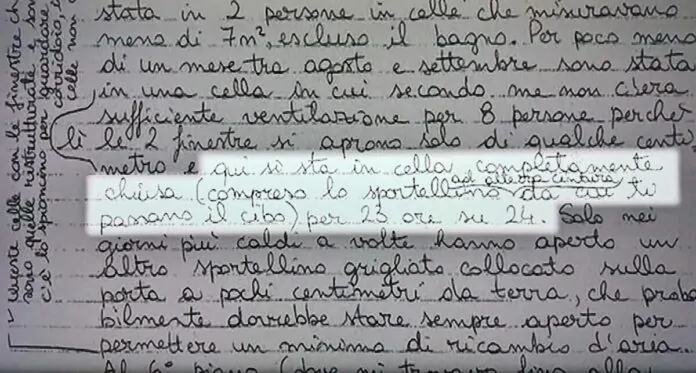 stata in 2 persone in celle che misuravano
meno di 7m², escluso il bagno. Per poco meno
di un mese tra agosto e settembre sono stata
in una cella in cui secondo me non c'era
sufficiente ventilazione per 8 persone perché
lì le 2 finestre si aprono solo di qualche centi
metro e qui si sta in cella completamente
chiusa (compreso lo sportellino ad altezza cintura da cui ti
passano il cibo) per 23 ore su 24. Solo nei
giorni più caldi a volte hanno aperto un
altro sportellino grigliato collocato sulla
porta a pochi centimetri da terra, che proba
bilmente dovrebbe stare sempre aperto per
permettere un minimo di ricambio d'aria.
Al 6° piano (dove mi trovavo fino alla
queste celle con le finestre ch
sono quelle ristrutturate
c'è lo spioncino per guardare
corridoio,
celle non